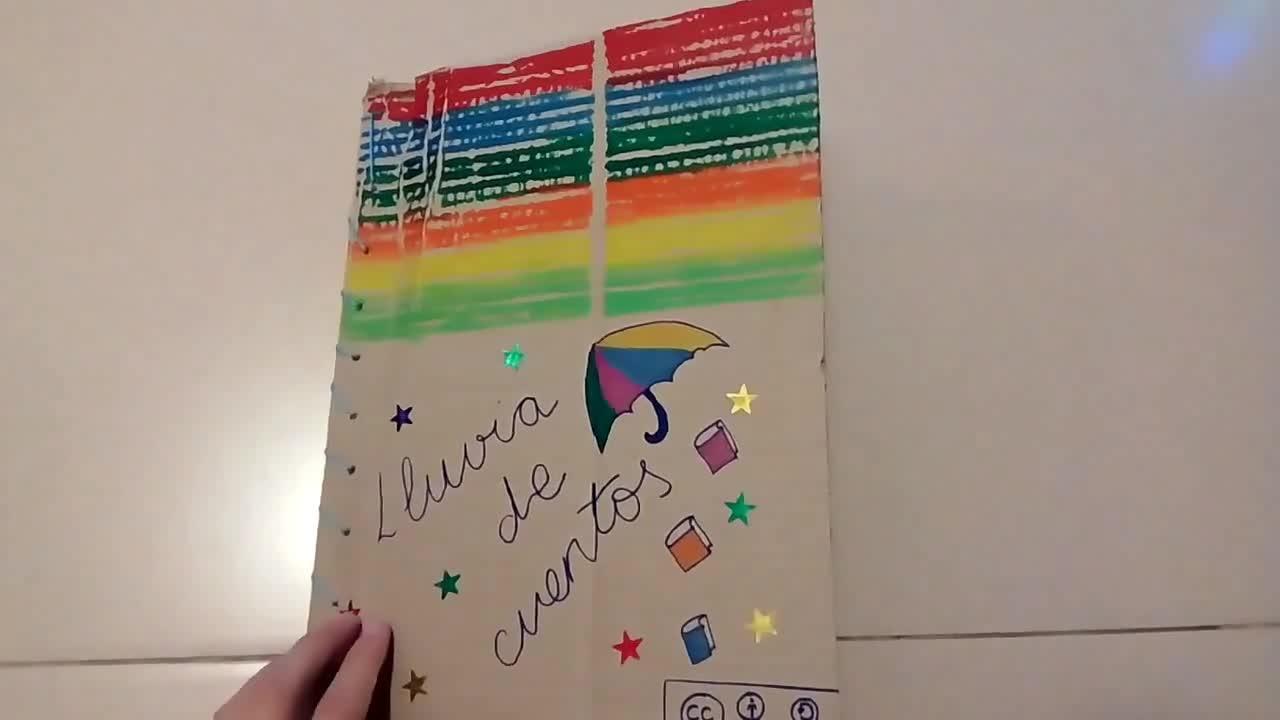 Lluvia
de
cuentos
CC